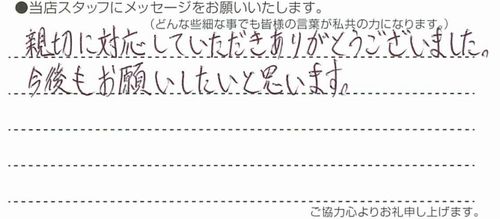 ●当店スタッフにメッセージをお願いいたします。
（どんな些細な事でも皆様の言葉が私共の力になります。）
親切に対応していただきありがとうございました。
今後もお願いしたいと思います。
ご協力心よりお礼申し上げます。